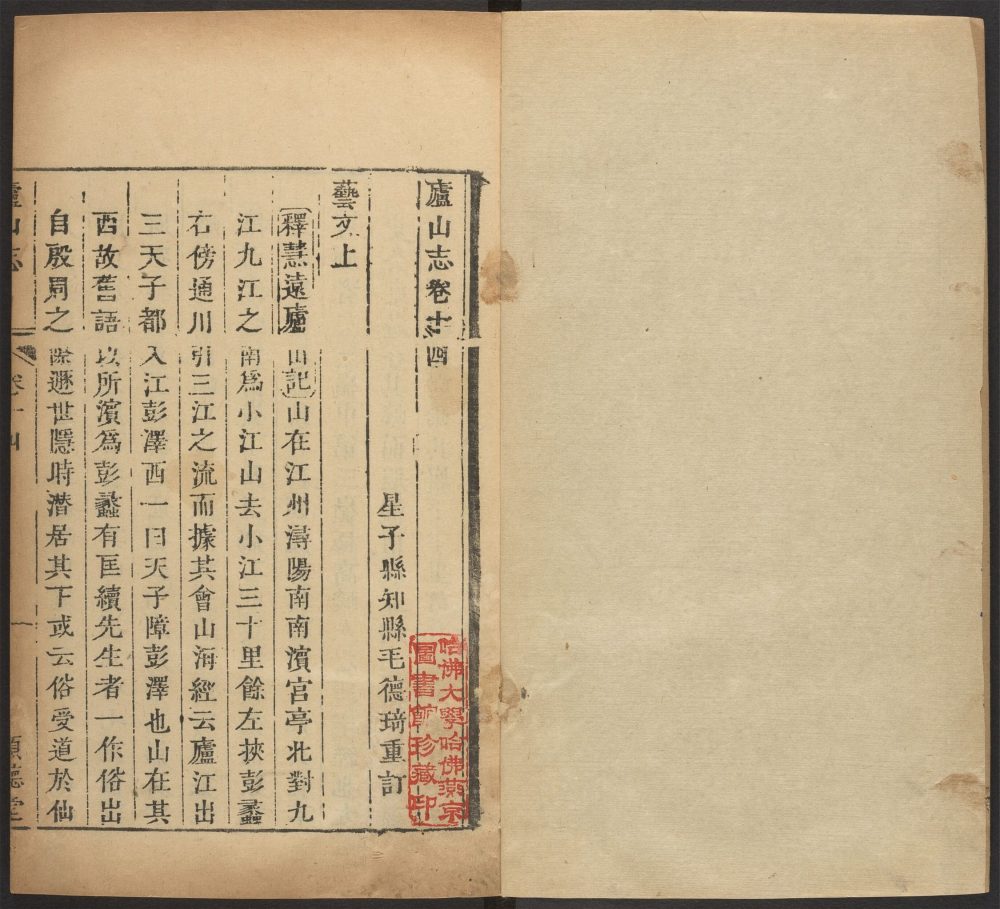 廬山志卷十四
星子縣知縣毛德琦重訂
藝文上
釋慧遠廬山記山在江州潯陽南南濱宮亭北對九
江九江之南爲小江山去小江三十里餘左挾彭蠡
右傍通川引三江之流而據其會山海經云廬江出
三天子都入江彭澤西一曰天子障彭澤也山在其
西故舊語以所濱爲彭蠡有匡續先生者一作俗出
自殷周之際遯世隱時潛居其下或云俗受道於仙
廬山志 卷十四 一 順德堂
哈佛大學哈佛燕京
圖書館珍藏印